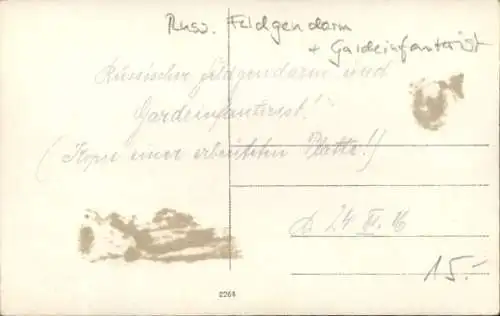 Russ. Feldgendarm
+ Gardeinfanterist
Russischer Feldgendarm und
Gardeinfanterist!
(Kopie einer erbeuteten Platte!)
24 II. 16
15.-
2264